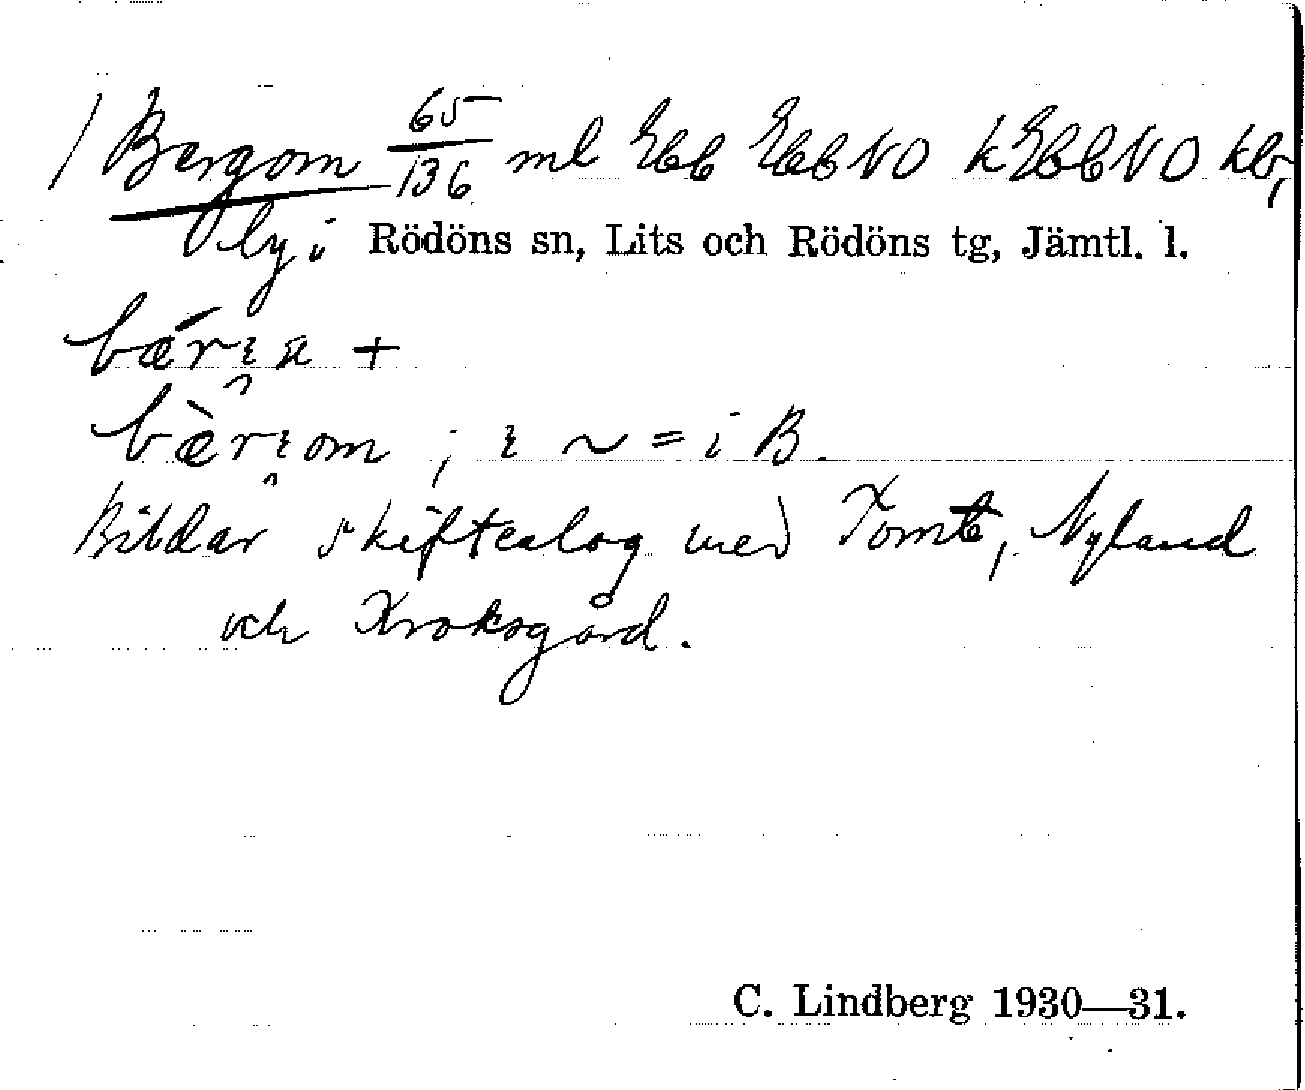 / Bergom 65/136 ml Ebb Ebb NO k Ebb NO kbr,
ly i Rödöns sn, Lits och Rödöns tg, Jämtl. l.
+
; ~ = i B.
Bildar skifteslag med Tomte, Nyland
och Kroksgård.
C. Lindberg 1930—31.